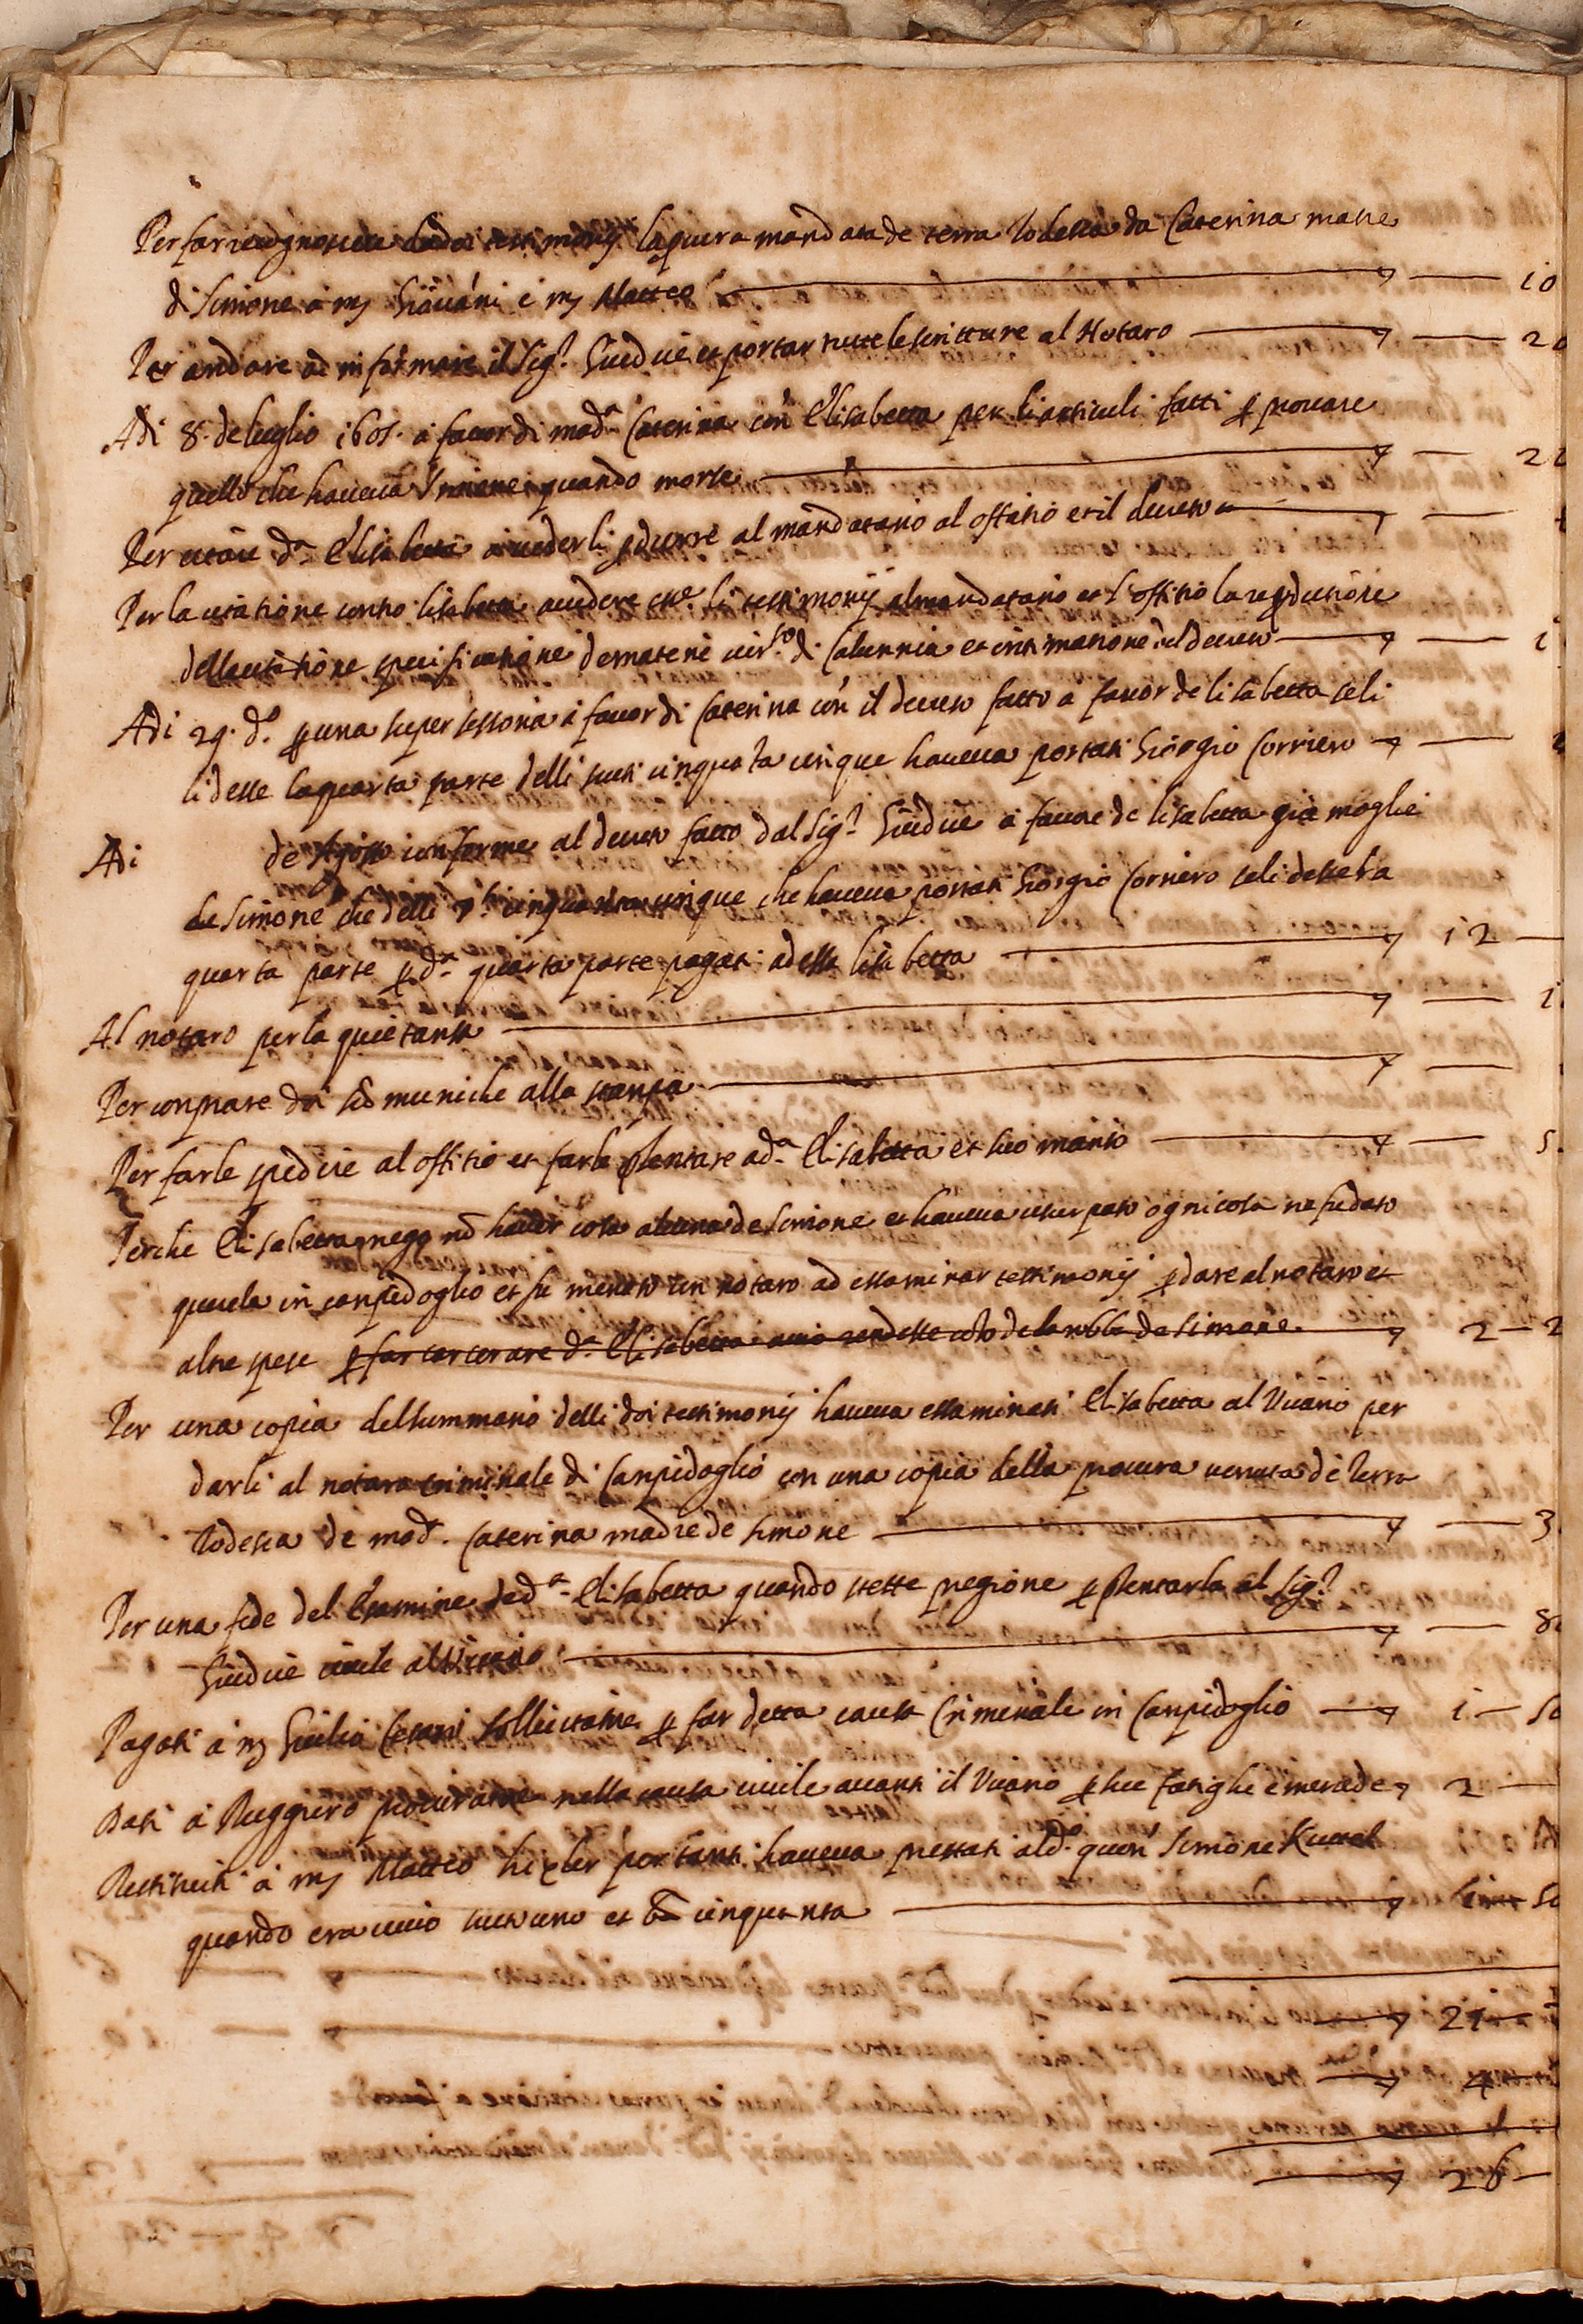 Per far recognoscere da doi testimonij la pcura mandata de terra Todescha da Caterina matre
di Simone à mj Giovãni e mj Matteo — 10
Per andare ad informare il Sigr Giudice et portar tutte le scritture al Notaro — 20
Adi 8. de luglio 1601. à favor di mada Caterina con Elisabetta per li articuli fatti p provare
quello che haveva Simone quando morse — 20
Per citare da Elisabetta à veder li pdurre al mandatario al offitio et il decreto
Per la citatione contro lisabetta a vedere li testimonij al mandatario et l'offitio la repdutione
della citatione specificatione de materie di Calunnia et intimatione del decreto — 1
Adi 29. do. p una supersessoria à favor di Caterina con il decreto fatto a favor de lisabetta seli
li desse la quarta parte delli scuti cinquãta cinque haveva portati Giorgio Corriero
Adi de Agosto conforme al decreto fatto dal Sigr Giudice à favore de lisabetta già moglie
de Simone che delli cinquanta cinque che haveva portati Giorgio Corriero seli desse la
quarta parte p da quarta parte pagati ad essa lisabetta — 12 —
Al notaro per la quietansa — 1
Per comprare doi scõmuniche alla stanpa —
Per farle spedire al offitio et farle pñtare a da Elisabetta et suo marito — 5
Perche Elisabetta nego nõ haver cosa alcuna de Simone et haveva usurpato ogni cosa ne fu dato
querela in canpidoglio et fu menato un notaro ad essaminar testimonij p dare al notaro et
altre spese p far carcerare da Elisabetta acciò rendesse coto de la robba de Simone — 2 — 2
Per una copia del summario delli doi testimonij haveva essaminati Elisabetta al Vicario per
darli al notaro criminale di Canpidoglio con una copia della procura venuta de Terra
Todesca de mad. Caterina madre de Simone — 3
Per una fede del Essamine de da Elisabetta quando stette pregione p pñtarla al Sigr
Giudice civile al Vicario — 8
Pagati à mj Giulio Cesari sollicitatore p far detta causa Criminale in Canpidoglio — 1 — 50
Dati à Ruggiero procuratore nella causa civile avanti il Vicario p sue fatighe e mercede — 2 —
Restituiti à mj Matteo per tanti haveva prestati al do quon Simone
quando era vivo scuto uno et b cinquanta — 1 — 50
— 21 —
— 4
— 26 —